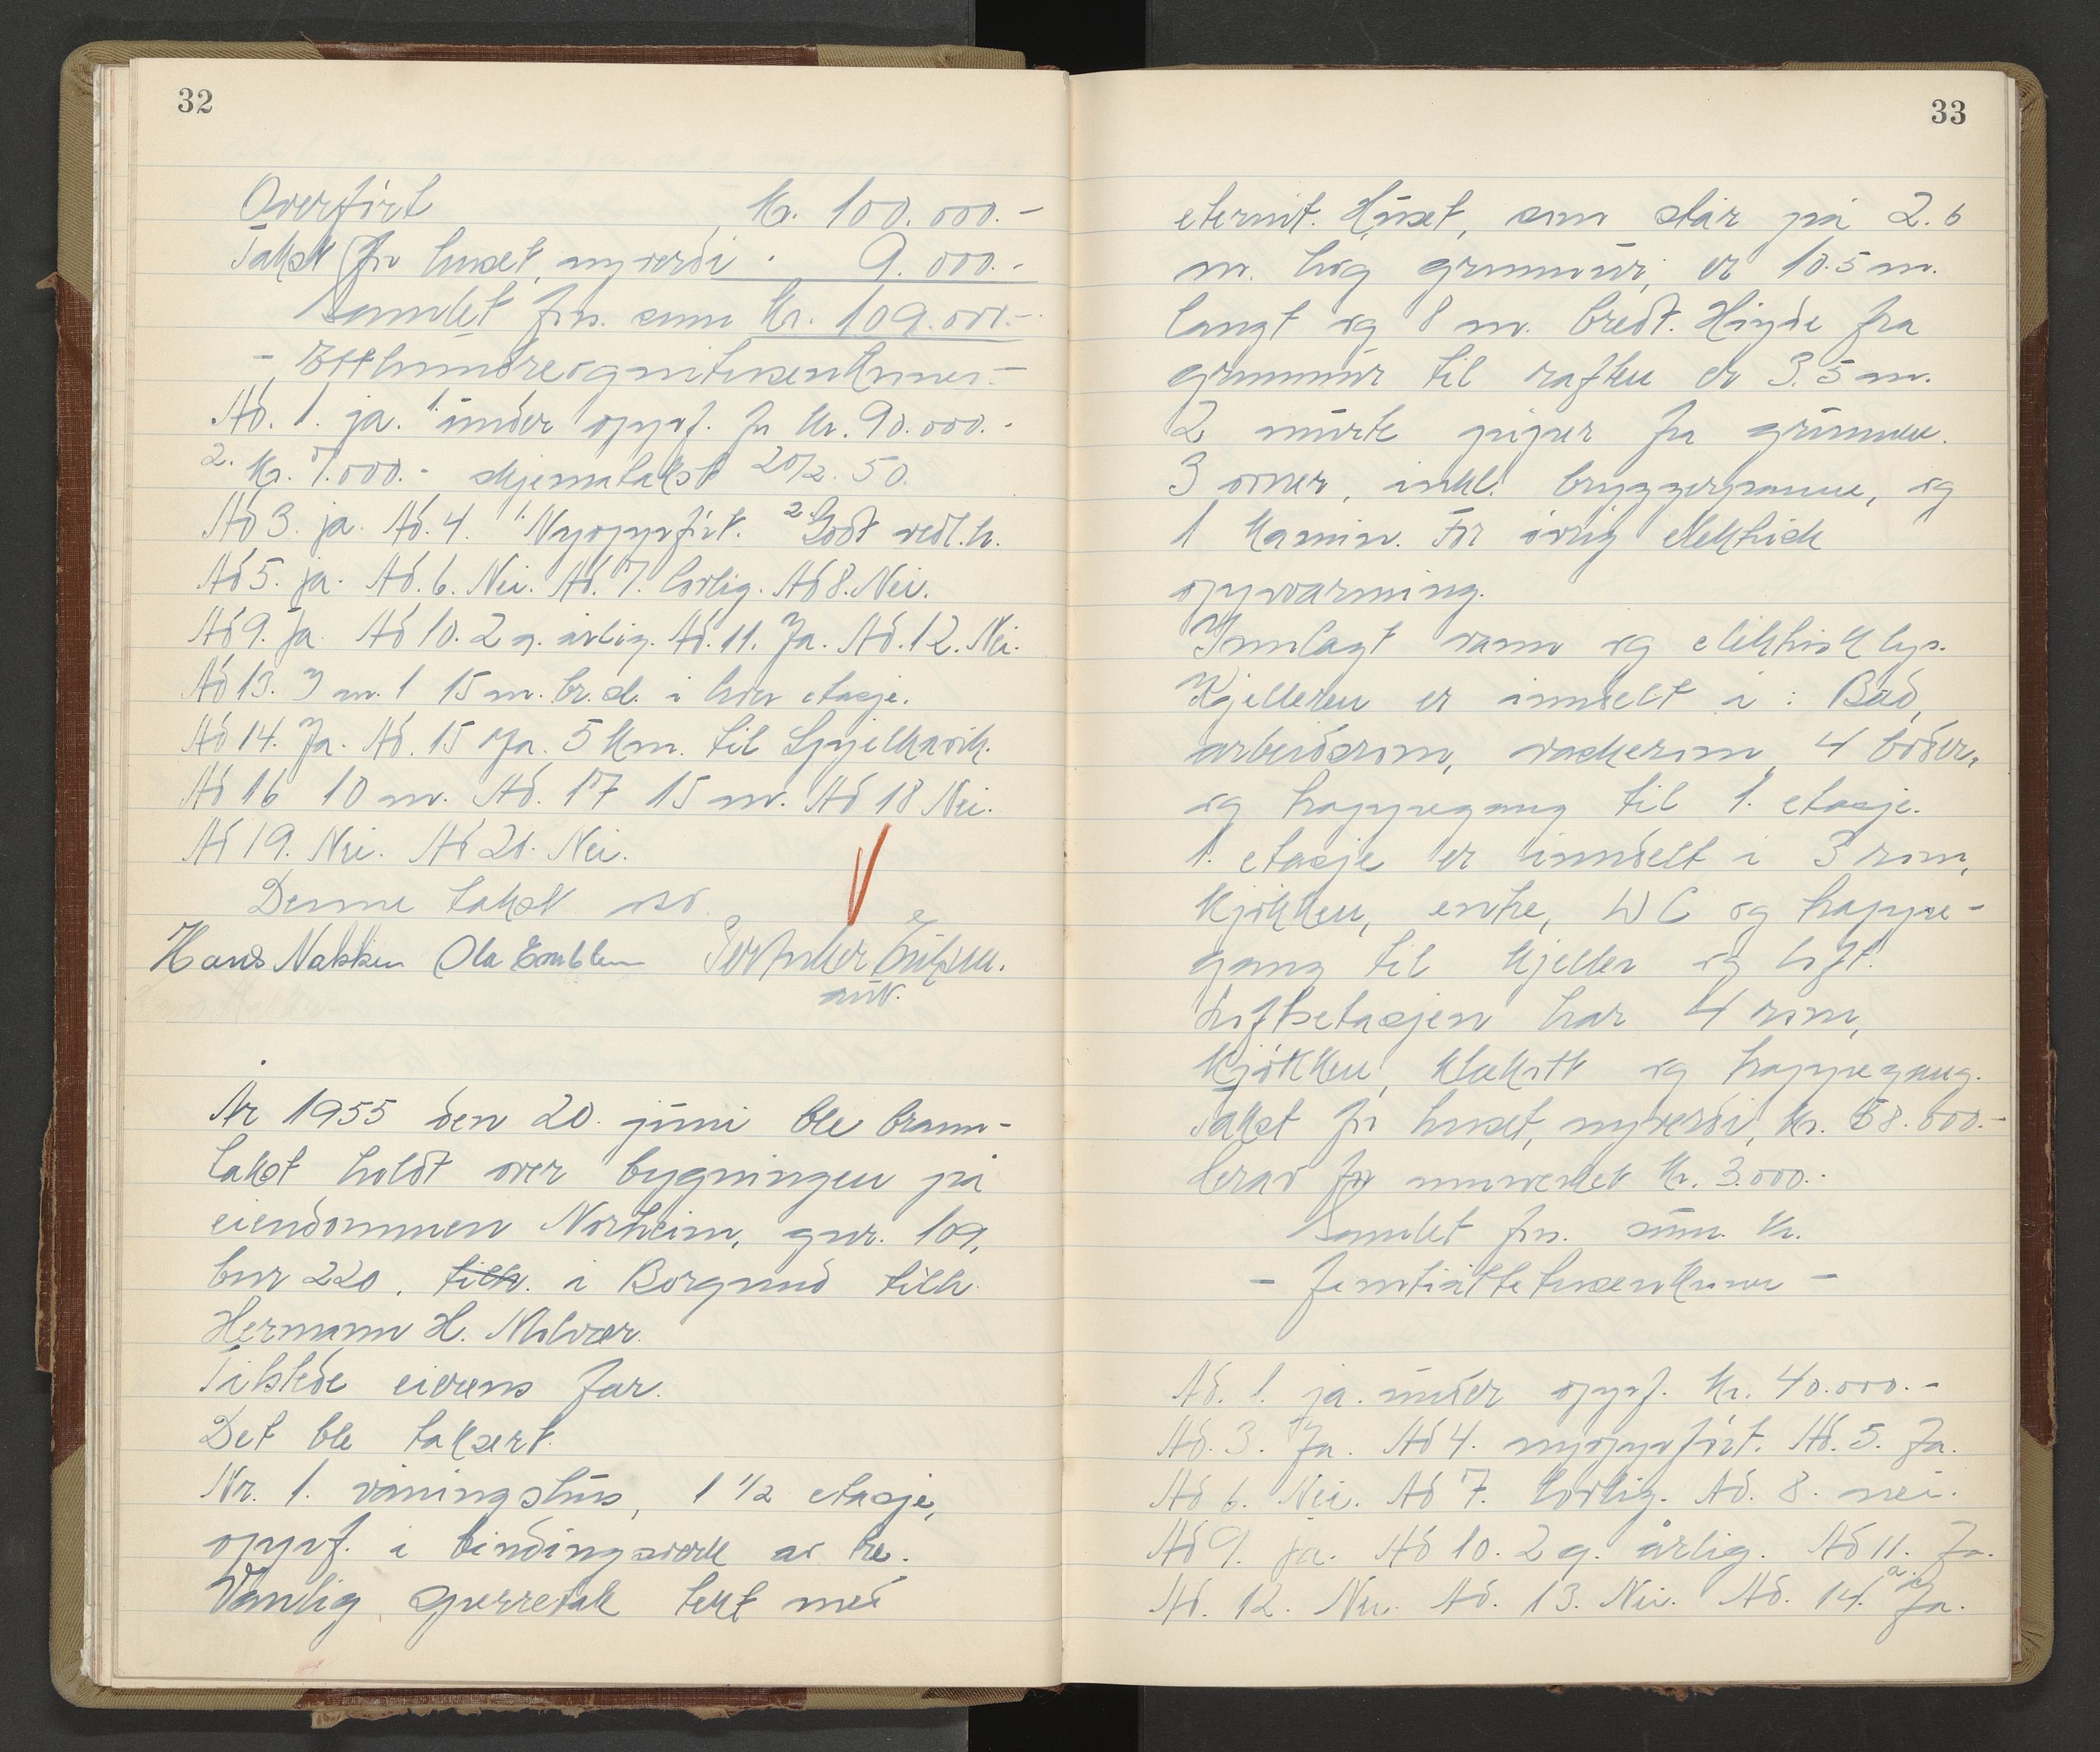 32
Overført kr. 100.000.-
Takst for huset, nyverdi · 9.000.-
Samlet fors. sum kr. 109.000.-
- Etthundreognitusenkroner.-
Ad. 1. ja. 1. under oppf. for kr. 90.000.-
2. kr. 7.000.- skjematakst 20/2. 50.
Ad 3. ja. Ad. 4. 1. Nyoppført. 2. Godt vedl.h.
Ad 5. ja. Ad. 6. Nei. Ad. 7. lovlig. Ad 8. Nei.
Ad 9. Ja Ad 10. 2 g. årlig. Ad. 11. Ja. Ad. 12. Nei.
Ad 13. 15 m. br.sl. i hver etasje.
Ad 14. Ja. Ad. 15 Ja. 5 km. til Spjelkavik.
Ad 16 10 m. Ad. 17 15 m. Ad 18 Nei.
Ad 19. Nei. Ad 20. Nei.
Denne takst
Hans Nakken Ola Emblem

År 1955 den 20. juni ble brann-
takst holdt over bygningen på
eiendommen Norheim, gnr. 109,
bnr 220, tilh. i Borgund tilh.
Hermann H. Molvær.
Tilstede eierens far.
Det ble taksert.
Nr. 1. våningshus, 1 1/2 etasje,
oppf. i bindingsverk av tre.
Vanlig sperretak tekt med
33
eternit. Huset, som står på 2.6
m. høg grunnmur, er 10.5 m.
langt og 8 m. bredt. Høyde fra
grunnmur til raften er 3.5 m.
2 murte piper fra grunnen.
3 ovner, inkl. bryggerpanne, og
1 kamin. For øvrig elektrisk
oppvarming.
Innlagt vann og elektrisk lys.
Kjelleren er inndelt i : Bad,
arbeidsrom, vaskerom, 4 boder,
og trappegang til 1. etasje.
1. etasje er inndelt i 3 rom,
kjøkken, entre, WC og trappe-
gang til kjeller og loft.
Loftsetasjen har 4 rom,
kjøkken, klosett og trappegang.
Takst for huset, nyverdi, kr. 58.000.-
herav for murverket kr. 3.000.-
Samlet fors. sum. kr.
- Femtiåttetusenkroner -
Ad. 1. ja. under oppf. kr. 40.000.-
Ad. 3. Ja. Ad 4. nyoppført. Ad. 5. Ja.
Ad 6. Nei. Ad 7. lovlig. Ad. 8. nei.
Ad 9. ja. Ad 10. 2 g. årlig. Ad 11. Ja.
Ad. 12. Nei. Ad. 13. Nei. Ad. 14. a. Ja.